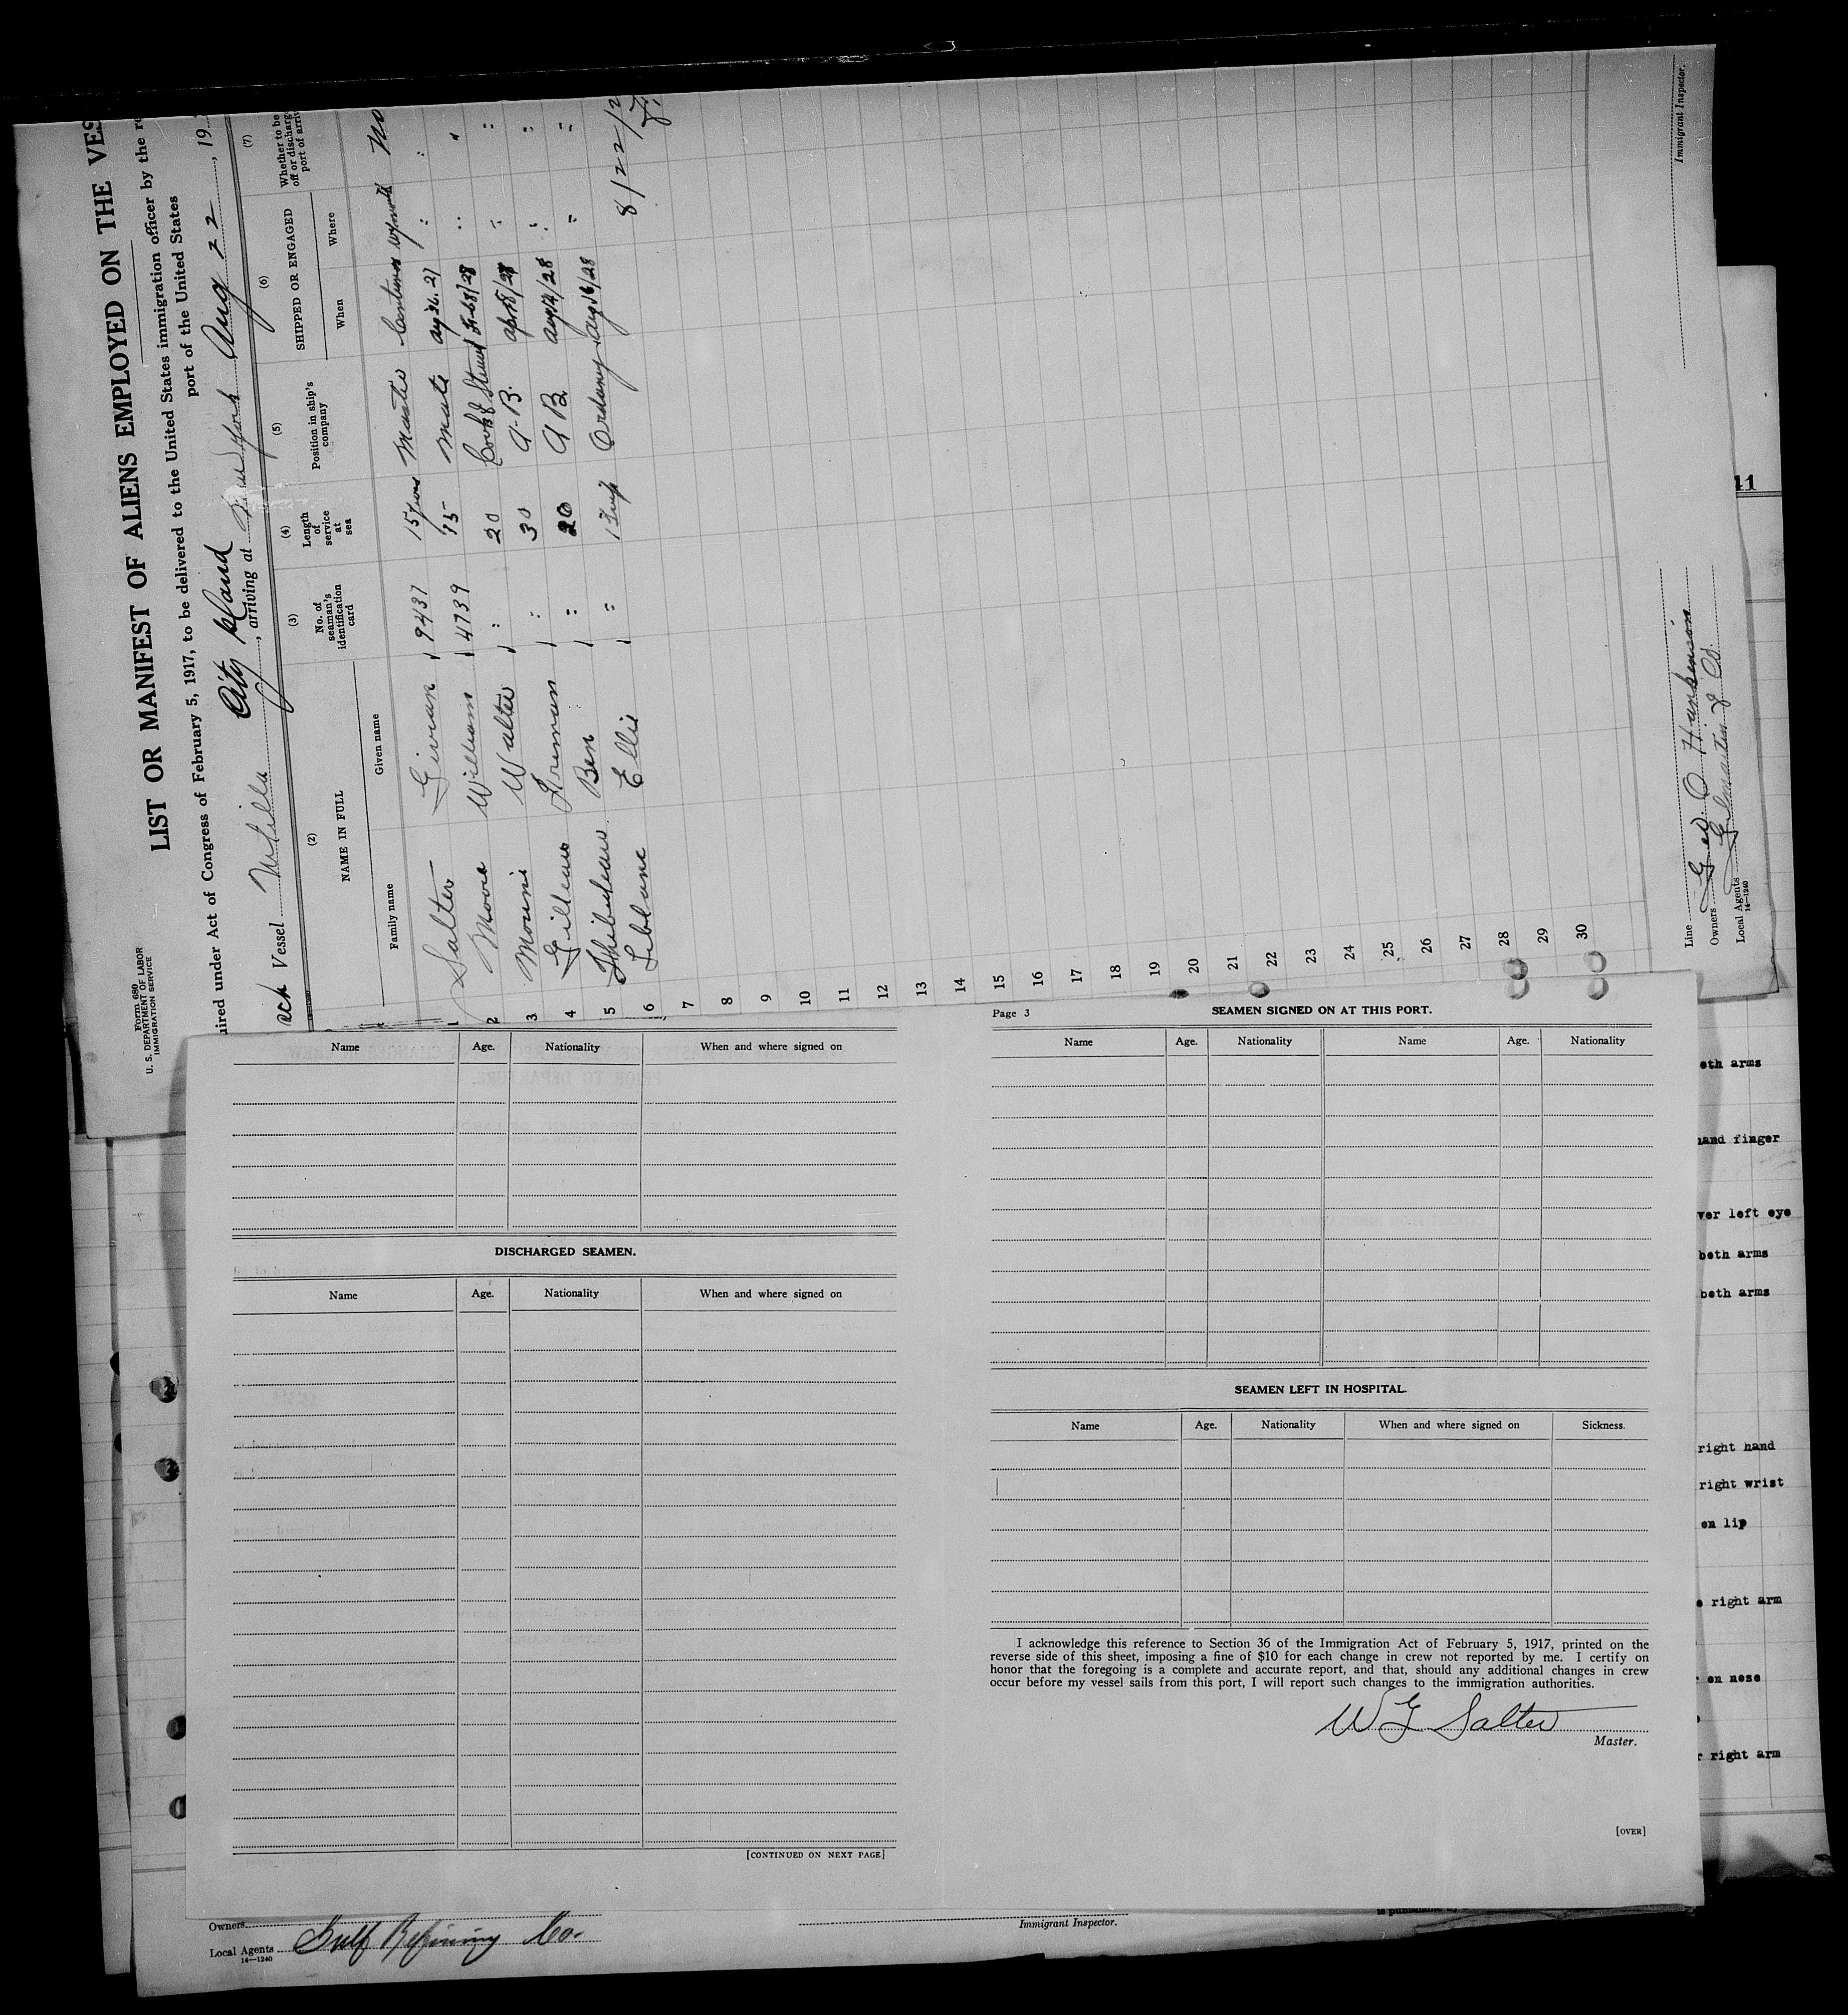 Form 680
U. S. DEPARTMENT OF LABOR
IMMIGRATION SERVICE
LIST OR MANIFEST OF ALIENS EMPLOYED ON THE VES
uired under Act of Congress of February 5, 1917, to be delivered to the United States immigration officer by the re
port of the United States
City Island
sch Vessel, arriving at New York Aug 22, 19
(2) (3) (4) (5) (6) (7)
NAME IN FULL No. of seaman's identification card Length of service at sea Position in ship's company SHIPPED OR ENGAGED Whether to be off or discharg port of arriv
Family name Given name When Where
1 Salter 9437 15 years Master No
2 Moore William 4739 15 Mate
3 Walter " 20 Cook & Steward "
4 Freman " 30 A. B. "
5 Ben " 20 A B "
6 Leblanc Ellis " 1 Trip Aug 16/28 "
8/22/2
7
8
9
10
11
12
13
14
15
16
17
18
19
20
21
22
23
24
25
26
27
28
29
30
Line
Immigrant Inspector.
Owners Geo O
Local Agents & Co.
14—1240
Name Age. Nationality When and where signed on
DISCHARGED SEAMEN.
Name Age. Nationality When and where signed on
[CONTINUED ON NEXT PAGE]
Page 3 SEAMEN SIGNED ON AT THIS PORT.
Name Age. Nationality Name Age. Nationality
SEAMEN LEFT IN HOSPITAL.
Name Age. Nationality When and where signed on Sickness.
I acknowledge this reference to Section 36 of the Immigration Act of February 5, 1917, printed on the
reverse side of this sheet, imposing a fine of $10 for each change in crew not reported by me. I certify on
honor that the foregoing is a complete and accurate report, and that, should any additional changes in crew
occur before my vessel sails from this port, I will report such changes to the immigration authorities.
W G Salter
Master.
[OVER]
Owners
Local Agents Gulf Refining Co.
14—1240
Immigrant Inspector.
41
eth arms
hand finger
ver left eye
beth arms
beth arms
right hand
right wrist
en lip
right arm
en nese
r right arm